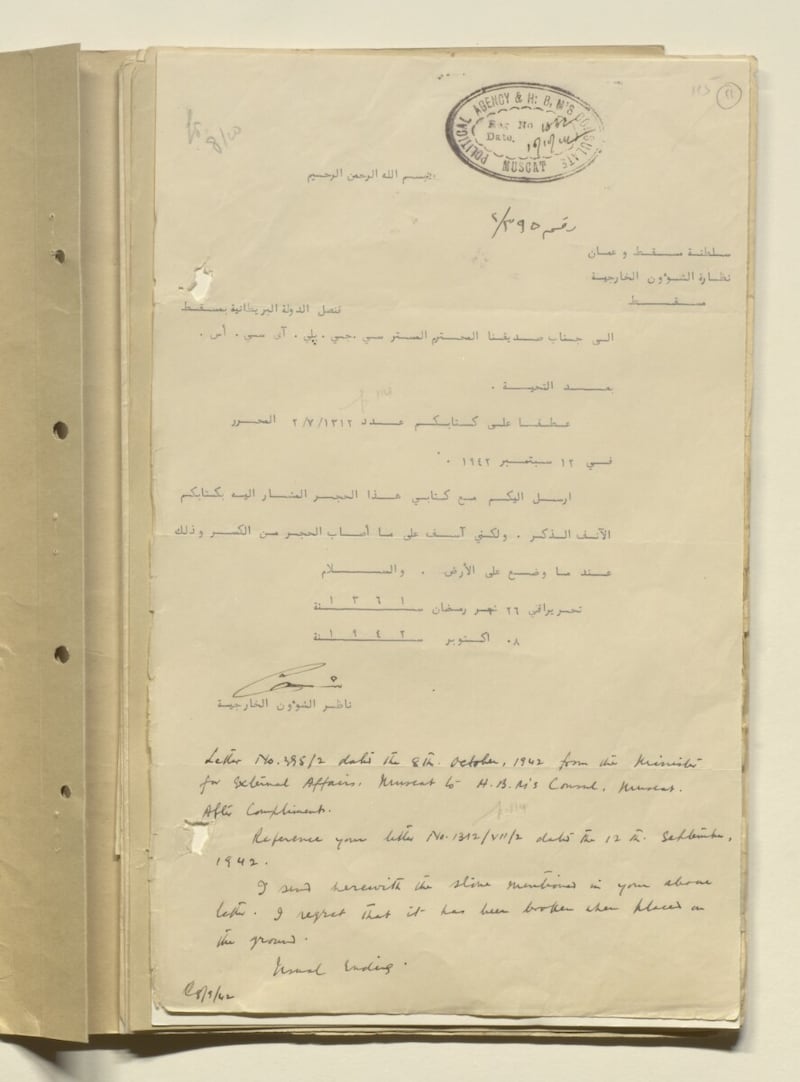 115
11
POLITICAL AGENCY & H. B. M'S CONSULATE
Reg No
Date.
MUSCAT
بسم الله الرحمن الرحيم
رقم ٢/٣٩٥
سلطنة مسقط وعمان
نظارة الشؤون الخارجية
مسقط
قنصل الدولة البريطانية بمسقط
الى جناب صديقنا المحترم المستر سي .جي . پلي . آي سي . أس .
بعد التحية .
عطفا على كتابكم عدد ٢/٧/١٣١٢ المحرر
في ١٢ سبتمبر ١٩٤٢ .
ارسل اليكم مع كتابي هذا الحجر المشار اليه بكتابكم
الآنف الذكر . ولكني آسف على ما أصاب الحجر من الكسر وذلك
عند ما وضع على الأرض . والسلام
تحريرا في ٢٦ شهر رمضان سنة ١٣٦١
٠٨ اكتوبر سنة ١٩٤٢
ناظر الشؤون الخارجية
Letter No. 395/2 dated the 8th. October, 1942 from the Minister
for External Affairs, Muscat to H.B.M's Consul, Muscat.
After Compliments.
Reference your letter No. 1312/VII/2 dated the 12th. September,
1942.
I send herewith the stone mentioned in your above
letter. I regret that it has been broken when placed on
the ground.
Usual Ending.
8/9/42